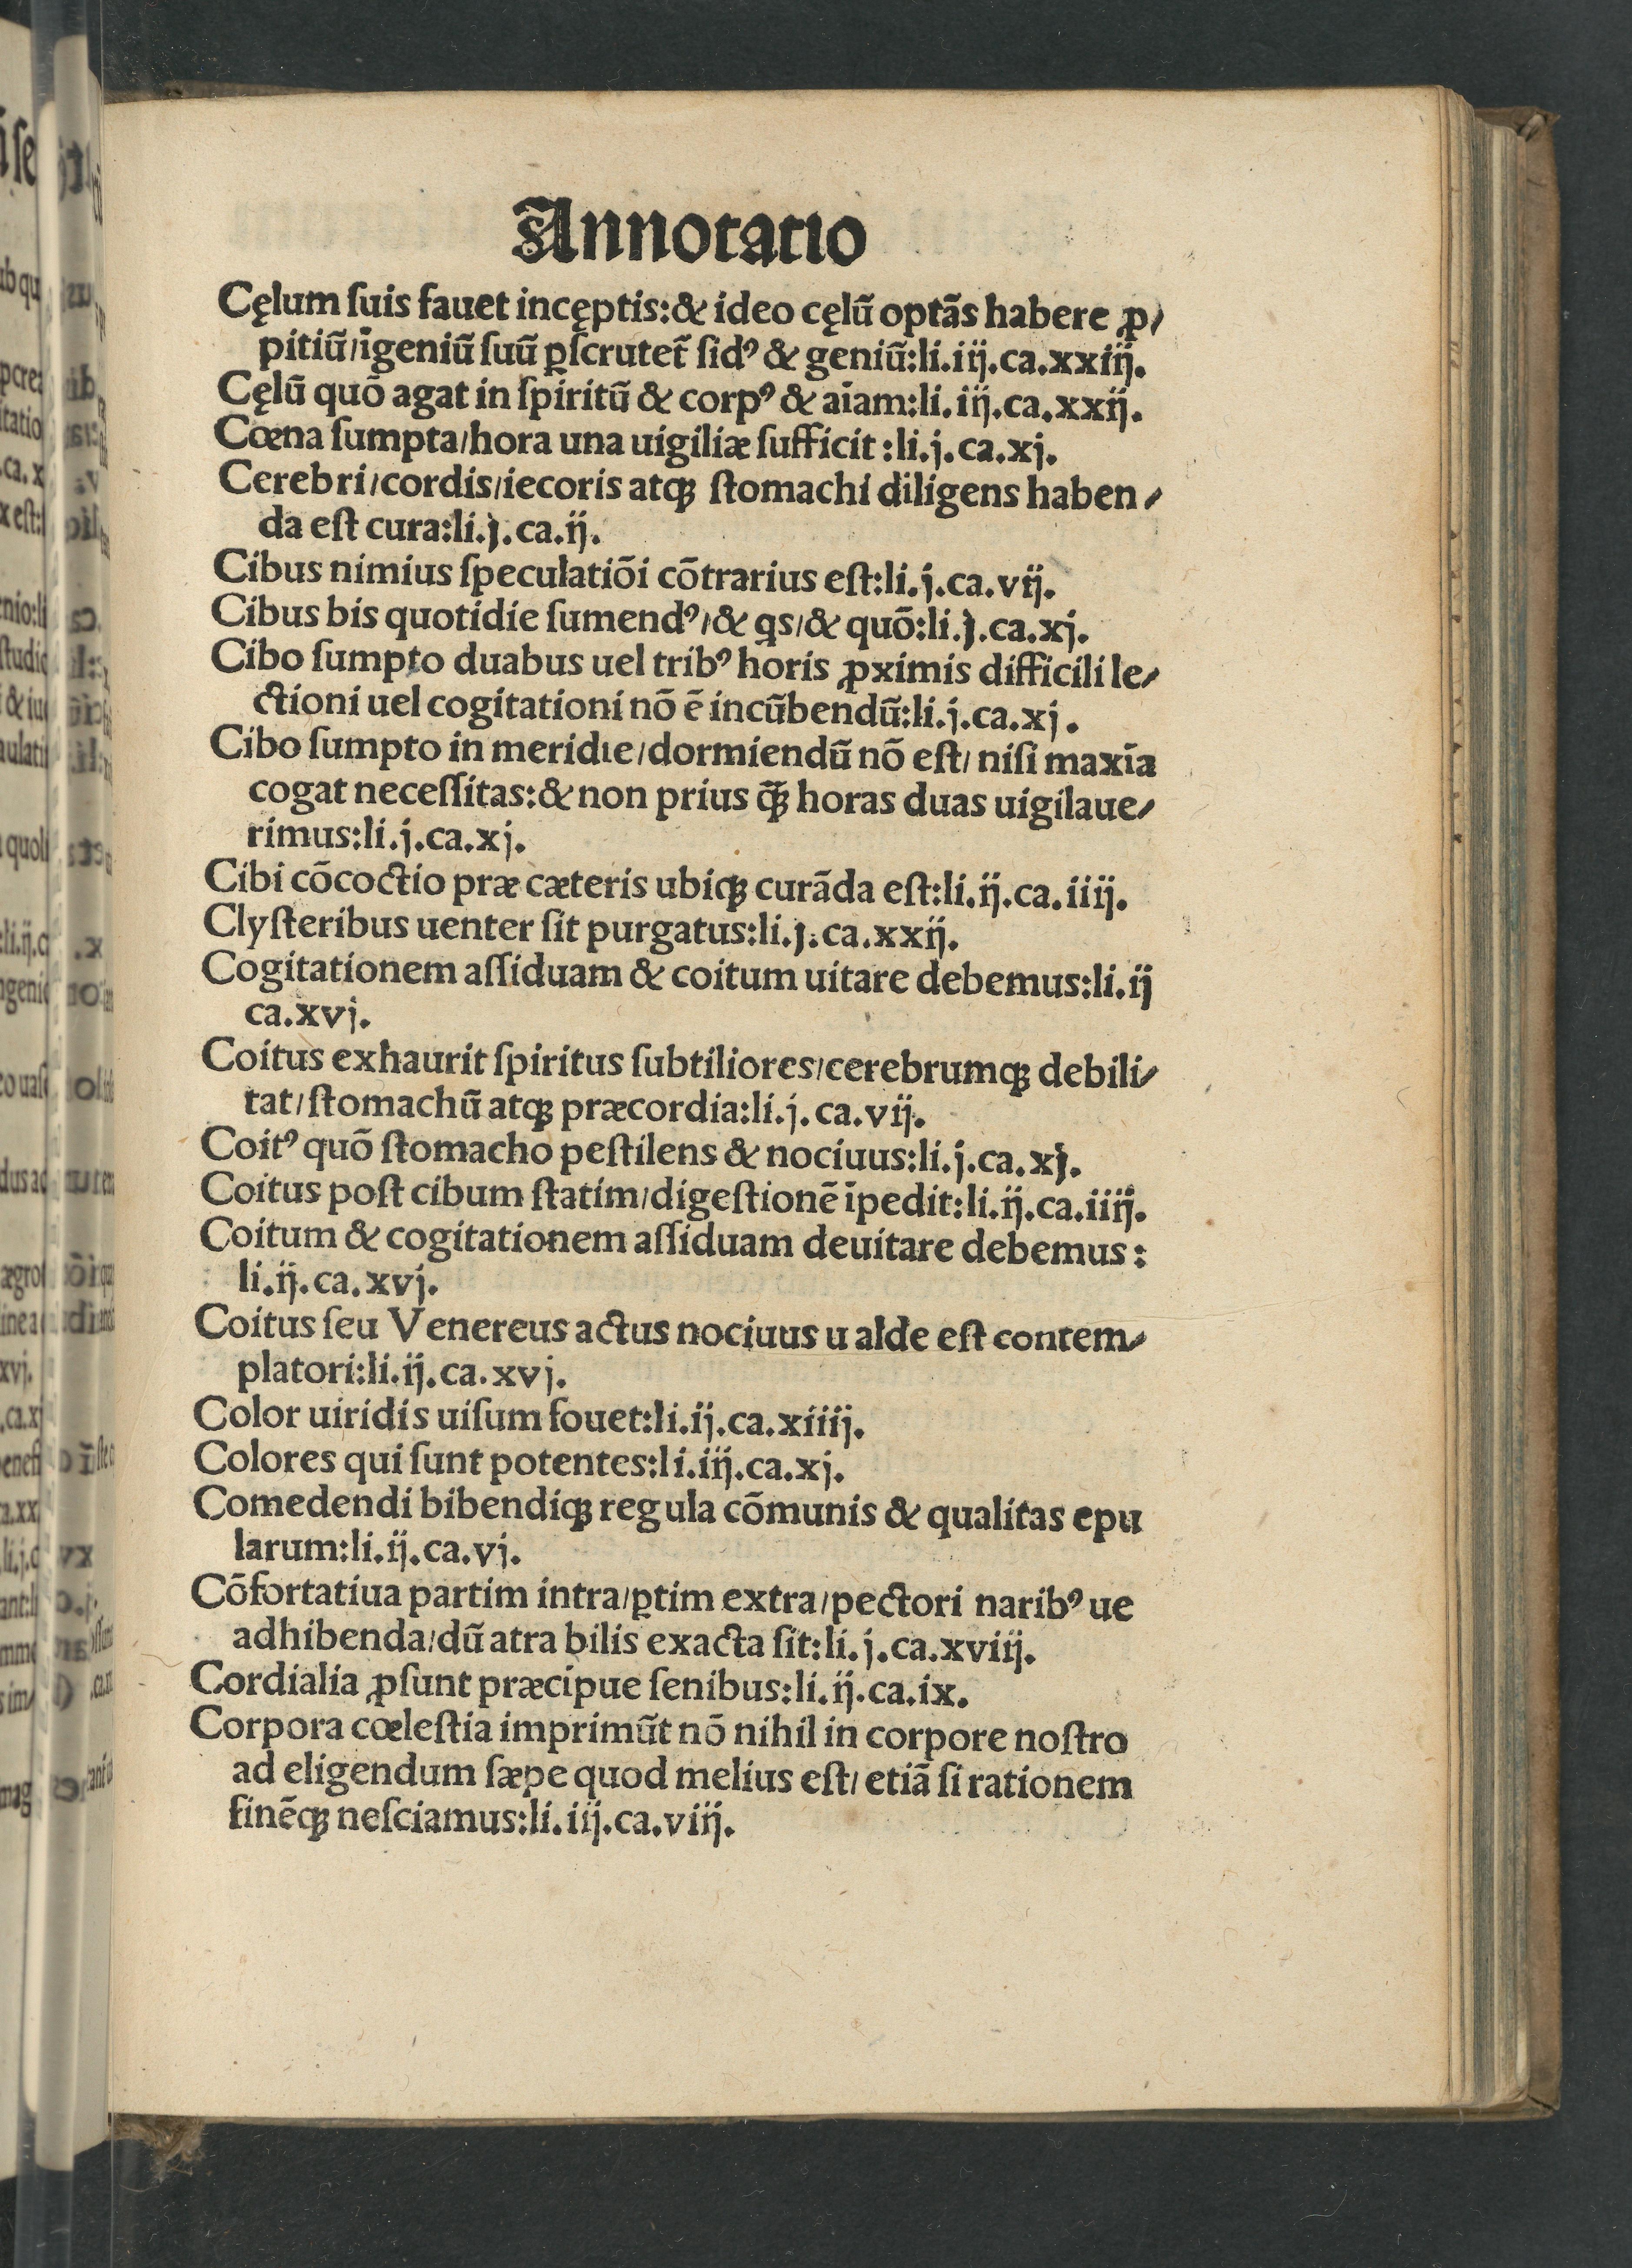 Annotatio
Cęlum ſuis fauet incęptis:& ideo cęlū optãs habere ꝓ/
pitiū/īgeniū ſuū ꝑſcrutet̃ ſidꝰ & geniū:li.iij.ca.xxiij.
Cęlū quõ agat in ſpiritū & corpꝰ & aīam:li.iij.ca.xxij.
Cœna ſumpta/hora una uigiliæ ſufficit:li.j.ca.xj.
Cerebri/cordis/iecoris atqꝫ ſtomachi diligens haben/
da eſt cura:li.j.ca.ij.
Cibus nimius ſpeculatiõi cõtrarius eſt:li.j.ca.vij.
Cibus bis quotidie ſumendꝰ/& qs/& quõ:li.j.ca.xj.
Cibo ſumpto duabus uel tribꝰ horis ꝓximis difficili le/
ctioni uel cogitationi nõ ē incūbendū:li.j.ca.xj.
Cibo ſumpto in meridie/dormiendū nõ eſt/ niſi maxīa
cogat neceſſitas:& non prius q̃ꝫ horas duas uigilaue/
rimus:li.j.ca.xj.
Cibi cõcoctio præ cæteris ubiqꝫ curãda eſt:li.ij.ca.iiij.
Clyſteribus uenter ſit purgatus:li.j.ca.xxij.
Cogitationem aſſiduam & coitum uitare debemus:li.ij
ca.xvj.
Coitus exhaurit ſpiritus ſubtiliores/cerebrumqꝫ debili/
tat/ſtomachū atqꝫ præcordia:li.j.ca.vij.
Coitꝰ quõ ſtomacho peſtilens & nociuus:li.j.ca.xj.
Coitus poſt cibum ſtatim/digeſtionē īpedit:li.ij.ca.iiij.
Coitum & cogitationem aſſiduam deuitare debemus:
li.ij.ca.xvj.
Coitus ſeu Venereus actus nociuus ualde eſt contem/
platori:li.ij.ca.xvj.
Color uiridis uiſum fouet:li.ij.ca.xiiij.
Colores qui ſunt potentes:li.iij.ca.xj.
Comedendi bibendiqꝫ regula cõmunis & qualitas epu
larum:li.ij.ca.vj.
Cõfortatiua partim intra/ꝑtim extra/pectori naribꝰ ue
adhibenda/dū atra bilis exacta ſit:li.j.ca.xviij.
Cordialia ꝓſunt præcipue ſenibus:li.ij.ca.ix.
Corpora cœleſtia imprimūt nõ nihil in corpore noſtro
ad eligendum ſæpe quod melius eſt/ etiã ſi rationem
finēqꝫ neſciamus:li.iij.ca.viij.